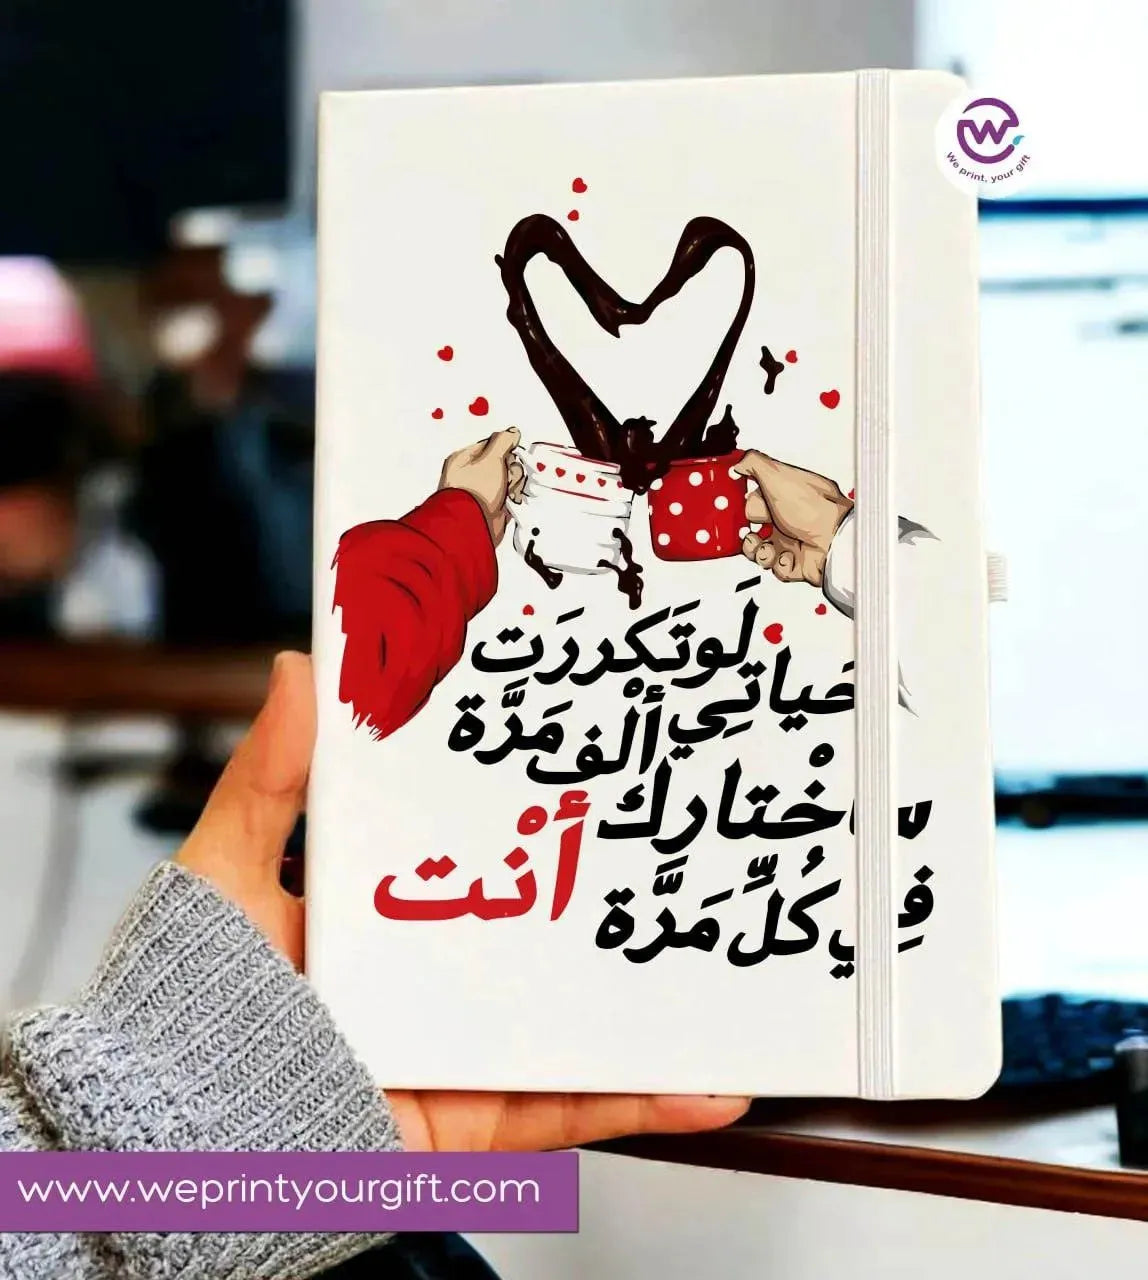 We print, your gift
لَو تَكررَت
حَياتِي أَلْف مَرَّة
سَأخْتارِك
فِي كُلِّ مَرَّة أَنْت
www.weprintyourgift.com